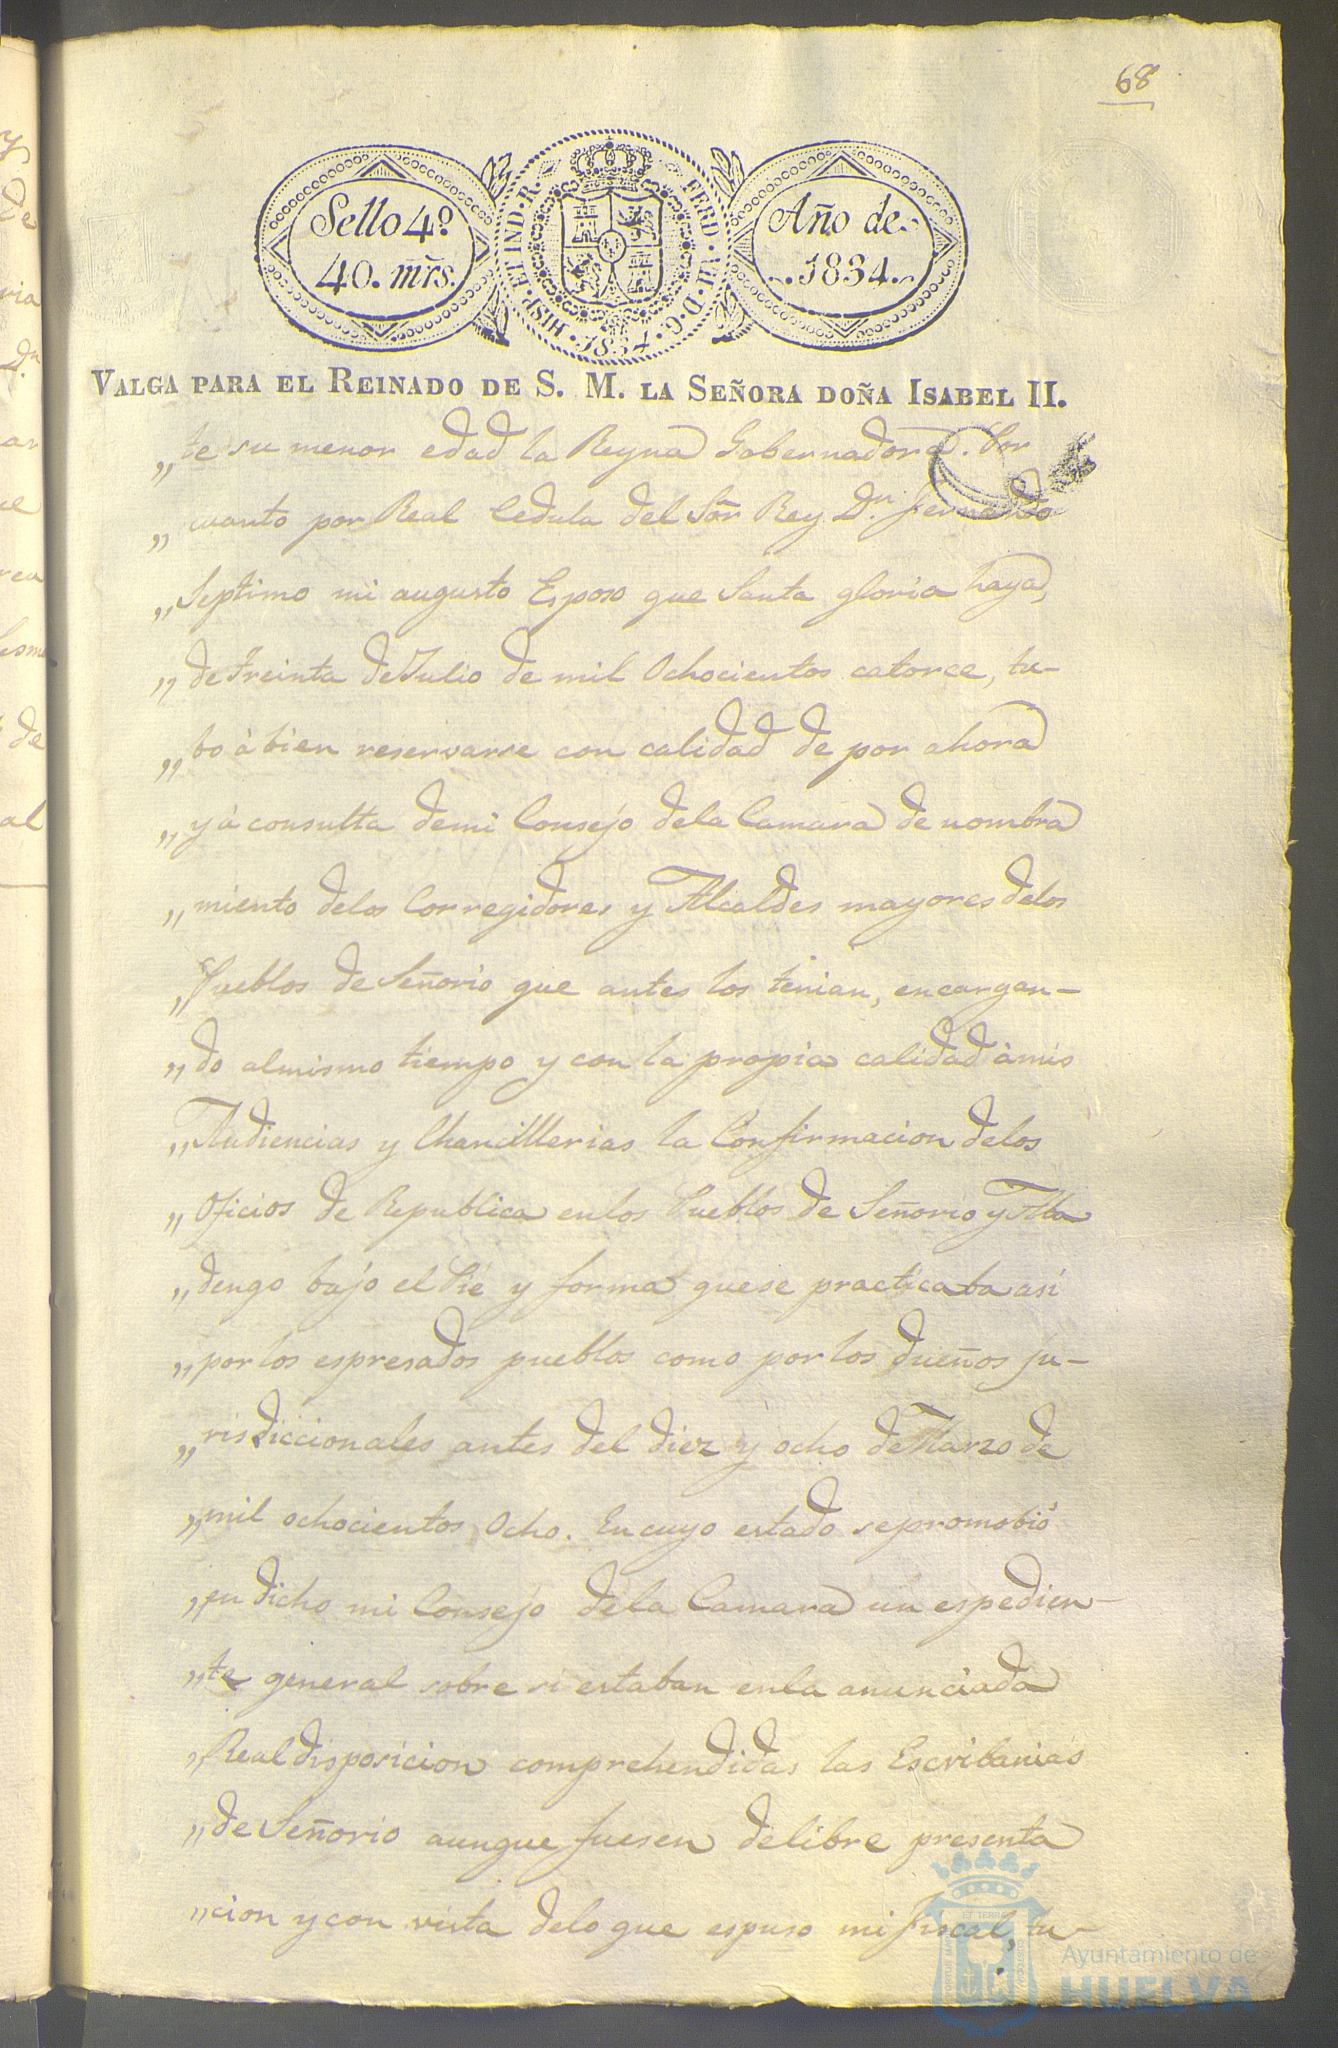 68
Sello 4º
40. mrs.
HISP. ET IND. R. FERD. VII. D. G. 1834.
Año de
1834.
VALGA PARA EL REINADO DE S. M. LA SEÑORA DOÑA ISABEL II.
„ te su menor edad la Reyna Gobernadora. Por
„ cuanto por Real Cedula del Sõr Rey Dn. Fernando
„ Septimo mi augusto Esposo que Santa gloria haya,
„ de treinta de Julio de mil Ochocientos catorce, tu-
„ bo à bien reservarse con calidad de por ahora
„ y à consulta de mi Consejo dela Camara de nombra
„ miento delos Corregidores y Alcaldes mayores delos
„ Pueblos de Señorio que antes los tenian, encargan-
„ do almismo tiempo y con la propia calidad à mis
„ Audiencias y Chancillerias la Confirmacion delos
„ Oficios de Republica enlos Pueblos de Señorio y Aba
„ dengo bajo el Pie y forma quese practicaba asi
„ por los espresados pueblos como por los dueños ju-
„ risdiccionales antes del diez y ocho de Marzo de
„ mil ochocientos Ocho. En cuyo estado sepromobió
„ en dicho mi Consejo dela Camara un espedien-
„ te general sobre si estaban enla anunciada
„ Real disposicion comprehendidas las Escribanias
„ de Señorio aunque fuesen delibre presenta
„ cion y con vista delo que espuso mi Fiscal, tu-
Ayuntamiento de
HUELVA